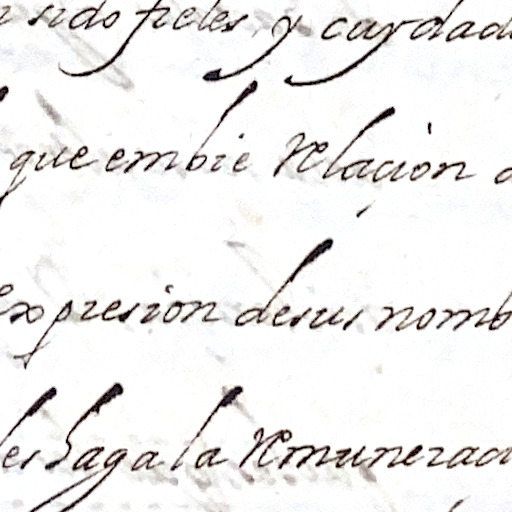 sido fieles, y cuydado
que embie Relaçion d
expresion desus nomb
les haga la Remunerac